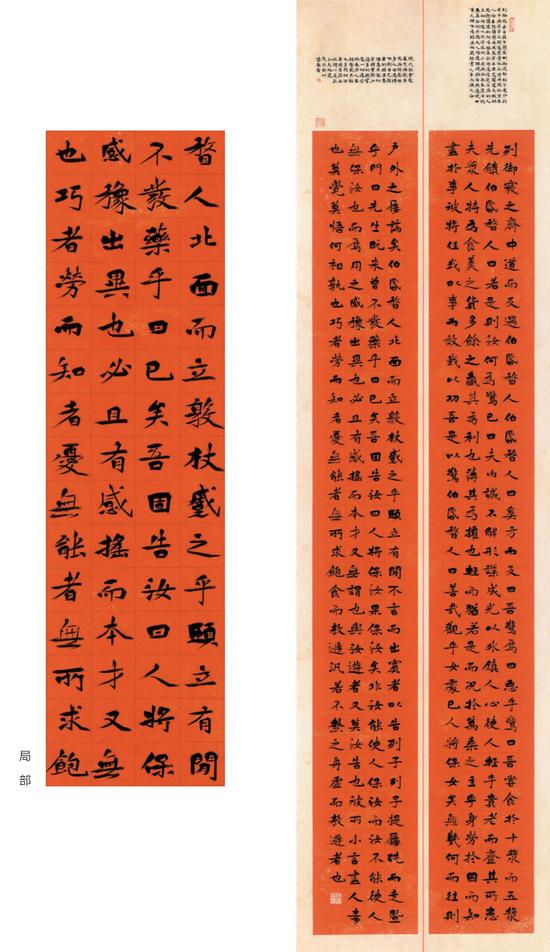 列御寇之齊中道而反遇伯昏瞀人伯昏瞀人曰奚方而反曰吾驚焉曰惡乎驚曰吾嘗食於十漿而五漿
先饋伯昏瞀人曰若是則汝何為驚已曰夫內誠不解形諜成光以外鎮人心使人輕乎貴老而齏其所患
夫漿人特為食羹之貨多餘之贏其為利也薄其為權也輕而猶若是而況於萬乘之主乎身勞於國而知
盡於事彼將任我以事而效我以功吾是以驚伯昏瞀人曰善哉觀乎女處已人將保女矣無幾何而往則
戶外之屨滿矣伯昏瞀人北面而立敦杖蹙之乎頤立有間不言而出賓者以告列子列子提屨跣而走暨
乎門曰先生既來曾不發藥乎曰已矣吾固告汝曰人將保汝果保汝矣非汝能使人保汝而汝不能使人
無保汝也而焉用之感豫出異也必且有感搖而本才又無謂也與汝遊者又莫汝告也彼所小言盡人毒
也莫覺莫悟何相孰也巧者勞而知者憂無能者無所求飽食而敖遊汎若不繫之舟虛而敖遊者也
瞀人北面而立敦杖蹙之乎頤立有間
不發藥乎曰已矣吾固告汝曰人將保
感豫出異也必且有感搖而本才又無
也巧者勞而知者憂無能者無所求飽
局部